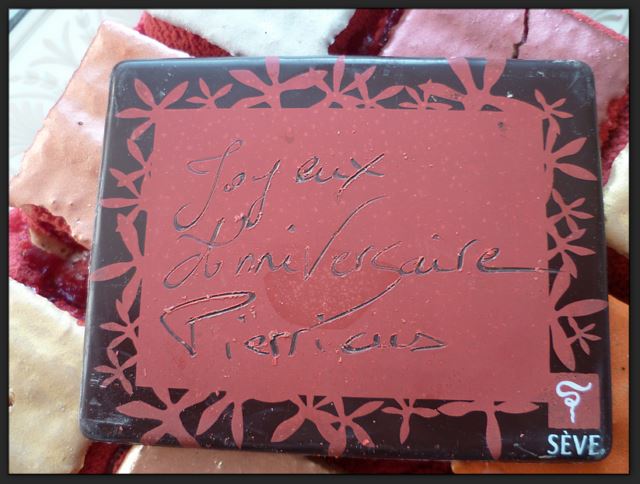 Joyeux
Anniversaire
Pierricus
SÈVE